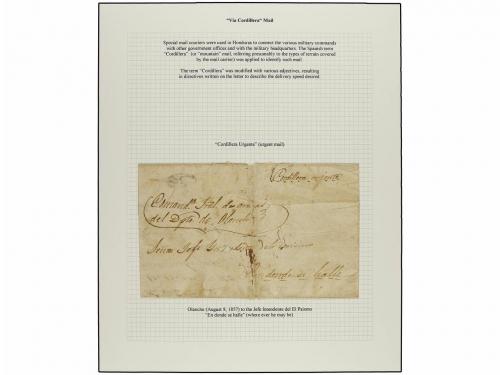 "Via Cordillera" Mail
Special mail couriers were used in Honduras to connect the various military commands
with other government offices and with the military headquarters. The Spanish term
"Cordillera" (or "mountain" mail, referring presumably to the types of terrain covered
by the mail carrier) was applied to identify such mail.
The term "Cordillera" was modified with various adjectives, resulting
in directives written on the letter to describe the delivery speed desired.
"Cordillera Urgente" (urgent mail)
Cordillera
Comand
del Dpto de Olancho
Señor Jefe
donde se halle
Olancho (August 8, 1857) to the Jefe Intendente del El Paraiso
"En donde se halle" (where ever he may be)